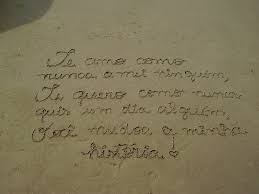 Te amo como
nunca amei ninguém,
Te quero como nunca
quis um dia alguém,
Você mudou a minha
história